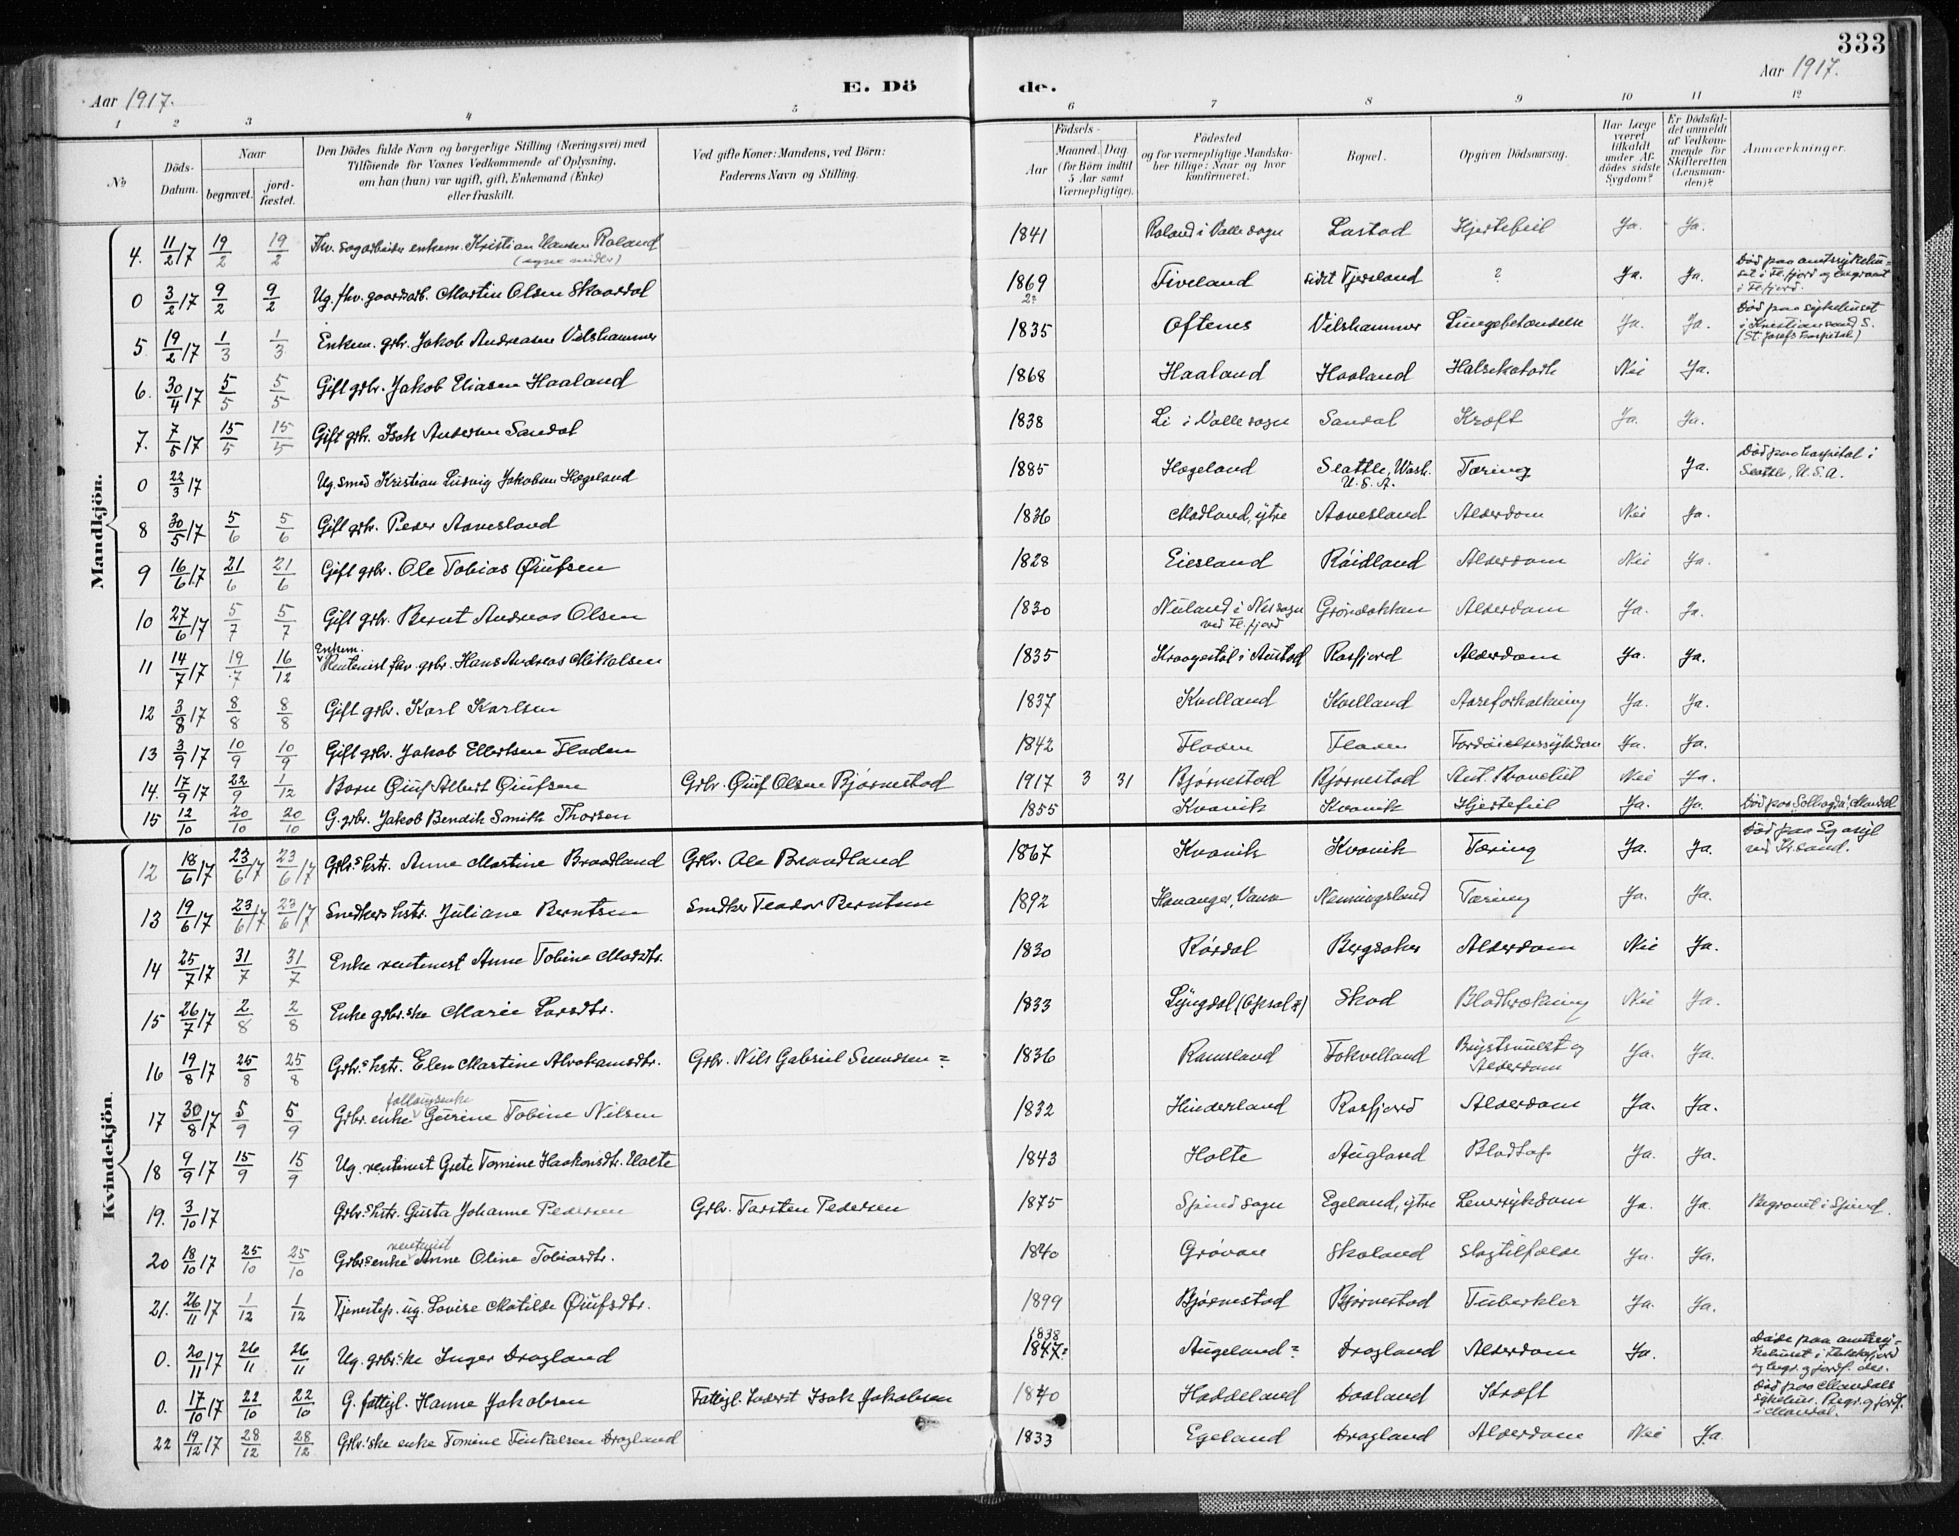 333
Aar 1917. E. Dö de. Aar 1917.
1 2 3 4 5 6 7 8 9 10 11 12
No
Döds-Datum.
Naar
begravet. jord-fæstet.
Den Dödes fulde Navn og borgerlige Stilling (Næringsvei) med
Tilföiende for Voxnes Vedkommende af Oplysning,
om han (hun) var ugift, gift, Enkemand (Enke)
eller fraskilt.
Ved gifte Koner: Mandens, ved Börn:
Faderens Navn og Stilling.
Födsels-
Aar Maaned. Dag.
(for Börn indtil 5 Aar samt Værnepligtige).
Födested
og for værnepligtige Mandska-
ber tillige: Naar og hvor
konfirmeret.
Bopæl.
Opgiven Dödsaarsag.
Har Læge været tilkaldt under Af-dödes sidste Sygdom?
Er Dödsfal-det anmeldt af Vedkom-mende for Skifteretten (Lensman-den)?
Anmærkninger.
Mandkjön.
4. 11/2 17 19/2 19/2 Fhv. sagarbeider enkem. Kristian Hansen Roland 1841 Roland i Valle sogn Lastad Hjertefeil Ja. Ja.
0 3/2 17 9/2 9/2 Ug. fhv. gaardarb. Martin Olsen Skaardal 1869 2? Tiveland sidst Fjeseland ? Ja. Ja. Død paa amtsykehu-set i Fl.fjord og begravet i Fl.fjord.
5 19/2 17 1/3 1/3 Enkem. grbr. Jakob Andreasen Vilshammer 1835 Oftenes Vilshammer Lungebetændelse Ja. Ja. Død paa sykehuset i Kristiansand S. (St. Josefs hospital)
6. 30/4 17 5/5 5/5 Gift grbr. Jakob Eliasen Haaland 1868 Haaland Haaland Halsekatarh Nei Ja.
7. 7/5 17 15/5 15/5 Gift grbr. Isak Andersen Sandal 1838 Li i Valle sogn Sandal Kræft Ja. Ja.
0 22/3 17 Ug. smed Kristian Ludvig Jakobsen Hægeland 1885 Hægeland Seattle, Wash. U.S.A. Tæring Ja. Død paa hospital i Seattle, U.S.A.
8 30/5 17 5/6 5/6 Gift grbr. Peder Aavesland 1836 Madland, ytre Aavesland Alderdom Nei Ja.
9 16/6 17 21/6 21/6 Gift grbr. Ole Tobias Øiufsen 1828 Eiesland Røidland Alderdom Nei Ja.
10 27/6 17 5/7 5/7 Gift grbr. Bernt Andreas Olsen 1830 Nuland i Nes sogn ved Fl.fjord Grøndokken Alderdom Ja. Ja.
11 14/7 17 19/7 16/12 Enkem. Rentenist fhv. grbr. Hans Andreas Mikalsen 1835 Kraagestøl i Austad Rosfjord Alderdom Ja. Ja.
12 3/8 17 8/8 8/8 Gift grbr. Karl Karlsen 1837 Kvelland Kvelland Aareforkalkning Ja. Ja.
13 3/9 17 10/9 10/9 Gift grbr. Jakob Ellertsen Fladen 1842 Fladen Fladen Fordøielsessykdom Ja. Ja.
14. 17/9 17 22/9 1/12 Barn Øiuf Albert Øiufsen Grbr. Øiuf Olsen Bjørnestad 1917 3 31 Bjørnestad Bjørnestad Ant. Bronchit Nei Ja.
15 12/10 20/10 20/10 G. grbr. Jakob Bendik Smith Thorsen 1855 Kvavik Kvavik Hjertefeil Ja. Ja. Død paa Solbagda, Mandal
Kvindekjön.
12 18/6 17 23/6 17 23/6 17 Grbr.s hstr. Anne Martine Braadland Grbr. Ole Braadland 1867 Kvavik Kvavik Tæring Ja. Ja. Død paa Eg asyl ved Kr.sand.
13 19/6 17 23/6 17 23/6 17 Snedkers hstr. Juliane Berntsen Snedker Teodor Berntsen 1892 Hananger, Vanse Nenningsland Tæring Ja. Ja.
14 25/7 17 31/7 31/7 Enke rentenist Anne Tobine Madsdtr. 1830 Rørdal Bergsaker Alderdom Nei Ja.
15 26/7 17 2/8 2/8 Enke grbr.ske Marie Larsdtr. 1833 Lyngdal Skad Blodbrækning Nei Ja.
16 19/8 17 25/8 25/8 Grbr.s hstr. Elen Martine Abrahamsdtr. Grbr. Nils Gabriel Svendsen 1836 Ramsland Fokvelland Brystsvulst og Alderdom Ja. Ja.
17 30/8 17 5/9 5/9 Grbr. enke Gurine Tobine Nilsen 1832 Hindersland Rosfjord Alderdom Ja. Ja.
18 9/9 17 15/9 15/9 Ug. rentenist Grete Tomine Haakonsdtr. Holte 1843 Holte Augland Blodtap Ja. Ja.
19. 3/10 17 Grbr.s hstr. Gusta Johanne Pedersen Grbr. Tarsten Pedersen 1875 Spind sogn Egeland, ytre Leversykdom Ja. Ja. Begravet i Spind.
20 18/10 17 25/10 25/10 Grbr.s enke rentenist Anne Oline Tobiasdtr. 1840 Grøvan Skoland Slagtilfælde Ja. Ja.
21. 26/11 17 1/12 1/12 Tjenestep. ug. Lovise Matilde Øiufsdtr. 1899 Bjørnestad Bjørnestad Tuberkler Ja. Ja.
0. 20/11 17 26/11 26/11 Ug. grbr.ske Inger Dragland 1838 1847? Augeland? Dragland Alderdom Ja. Døde paa amtsy-kehuset i Flekkefjord og begr. og jordf. der.
0. 17/10 17 22/10 22/10 G. fattigl. Hanne Jakobsen Fattigl. Inderst Isak Jakobsen 1840 Haddeland Daaland Kræft Død paa Mandals sykehus. Begr. og jordf. i Mandal.
22 19/12 17 28/12 28/12 Grbr.ske enke Tomine Tinkelsen Dragland 1833 Egeland Dragland Alderdom Nei Ja